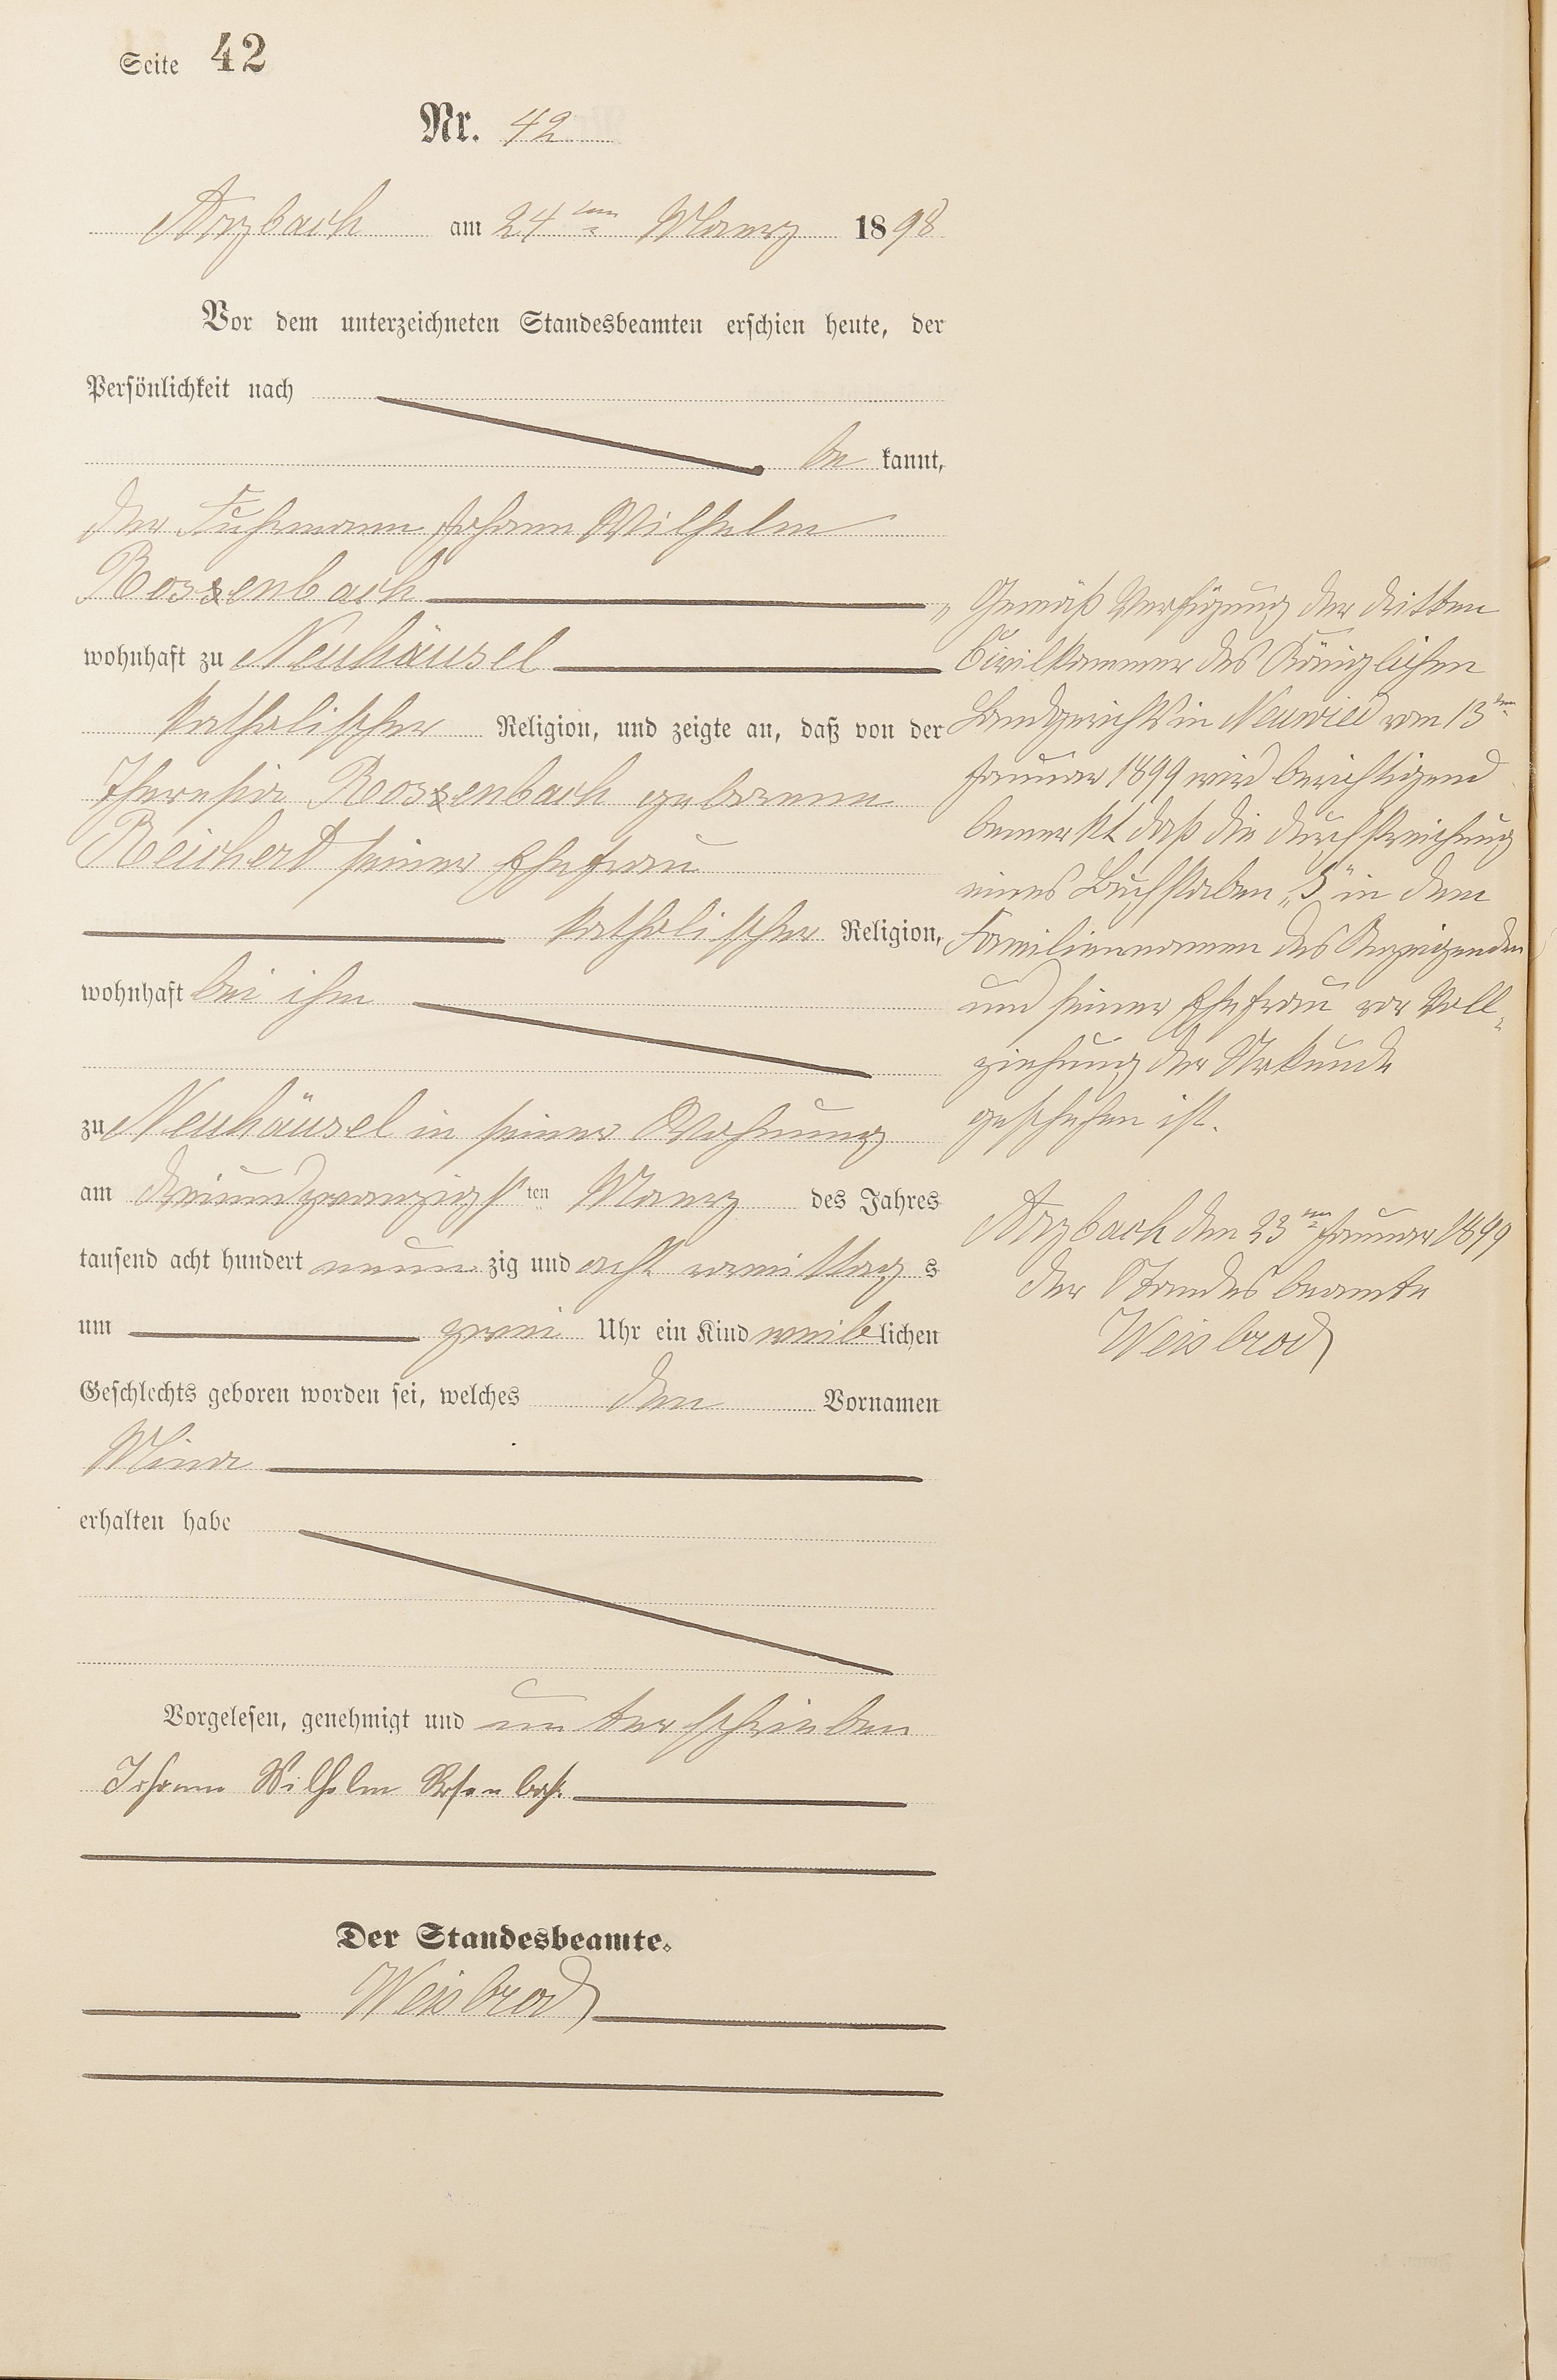 Seite 42
Nr. 42
Arzbach am 24ten Maerz 1898
Vor dem unterzeichneten Standesbeamten erschien heute, der
Persönlichkeit nach
be kannt,
der Fuhrmann Johann Wilhelm
Rossenbach
wohnhaft zu Neuhäusel
katholischer Religion, und zeigte an, daß von der
Theresia Rossenbach geborenen
Reichert seiner Ehefrau
katholischer Religion,
wohnhaft bei ihm
zu Neuhäusel in seiner Wohnung
am dreiundzwanzigsten Maerz des Jahres
tausend acht hundert neun zig und acht vormittag s
um zwei Uhr ein Kind weiblichen
Geschlechts geboren worden sei, welches den Vornamen
Mina
erhalten habe
Vorgelesen, genehmigt und unterschrieben
Johann Wilhelm Rosenbach
Der Standesbeamte.
Weisbrod
„Gemäß Verfügung der dritten
Civilkammer des Königlichen
Landgerichts in Neuwied vom 13ten
Januar 1899 wird berichtigend
bemerkt daß die Durchstreichung
eines Buchstaben „s" in dem
Familiennamen des Anzeigenden
und seiner Ehefrau vor Voll-
ziehung der Urkunde
geschehen ist.
Arzbach den 23ten Januar 1899
Der Standesbeamte
Weisbrod